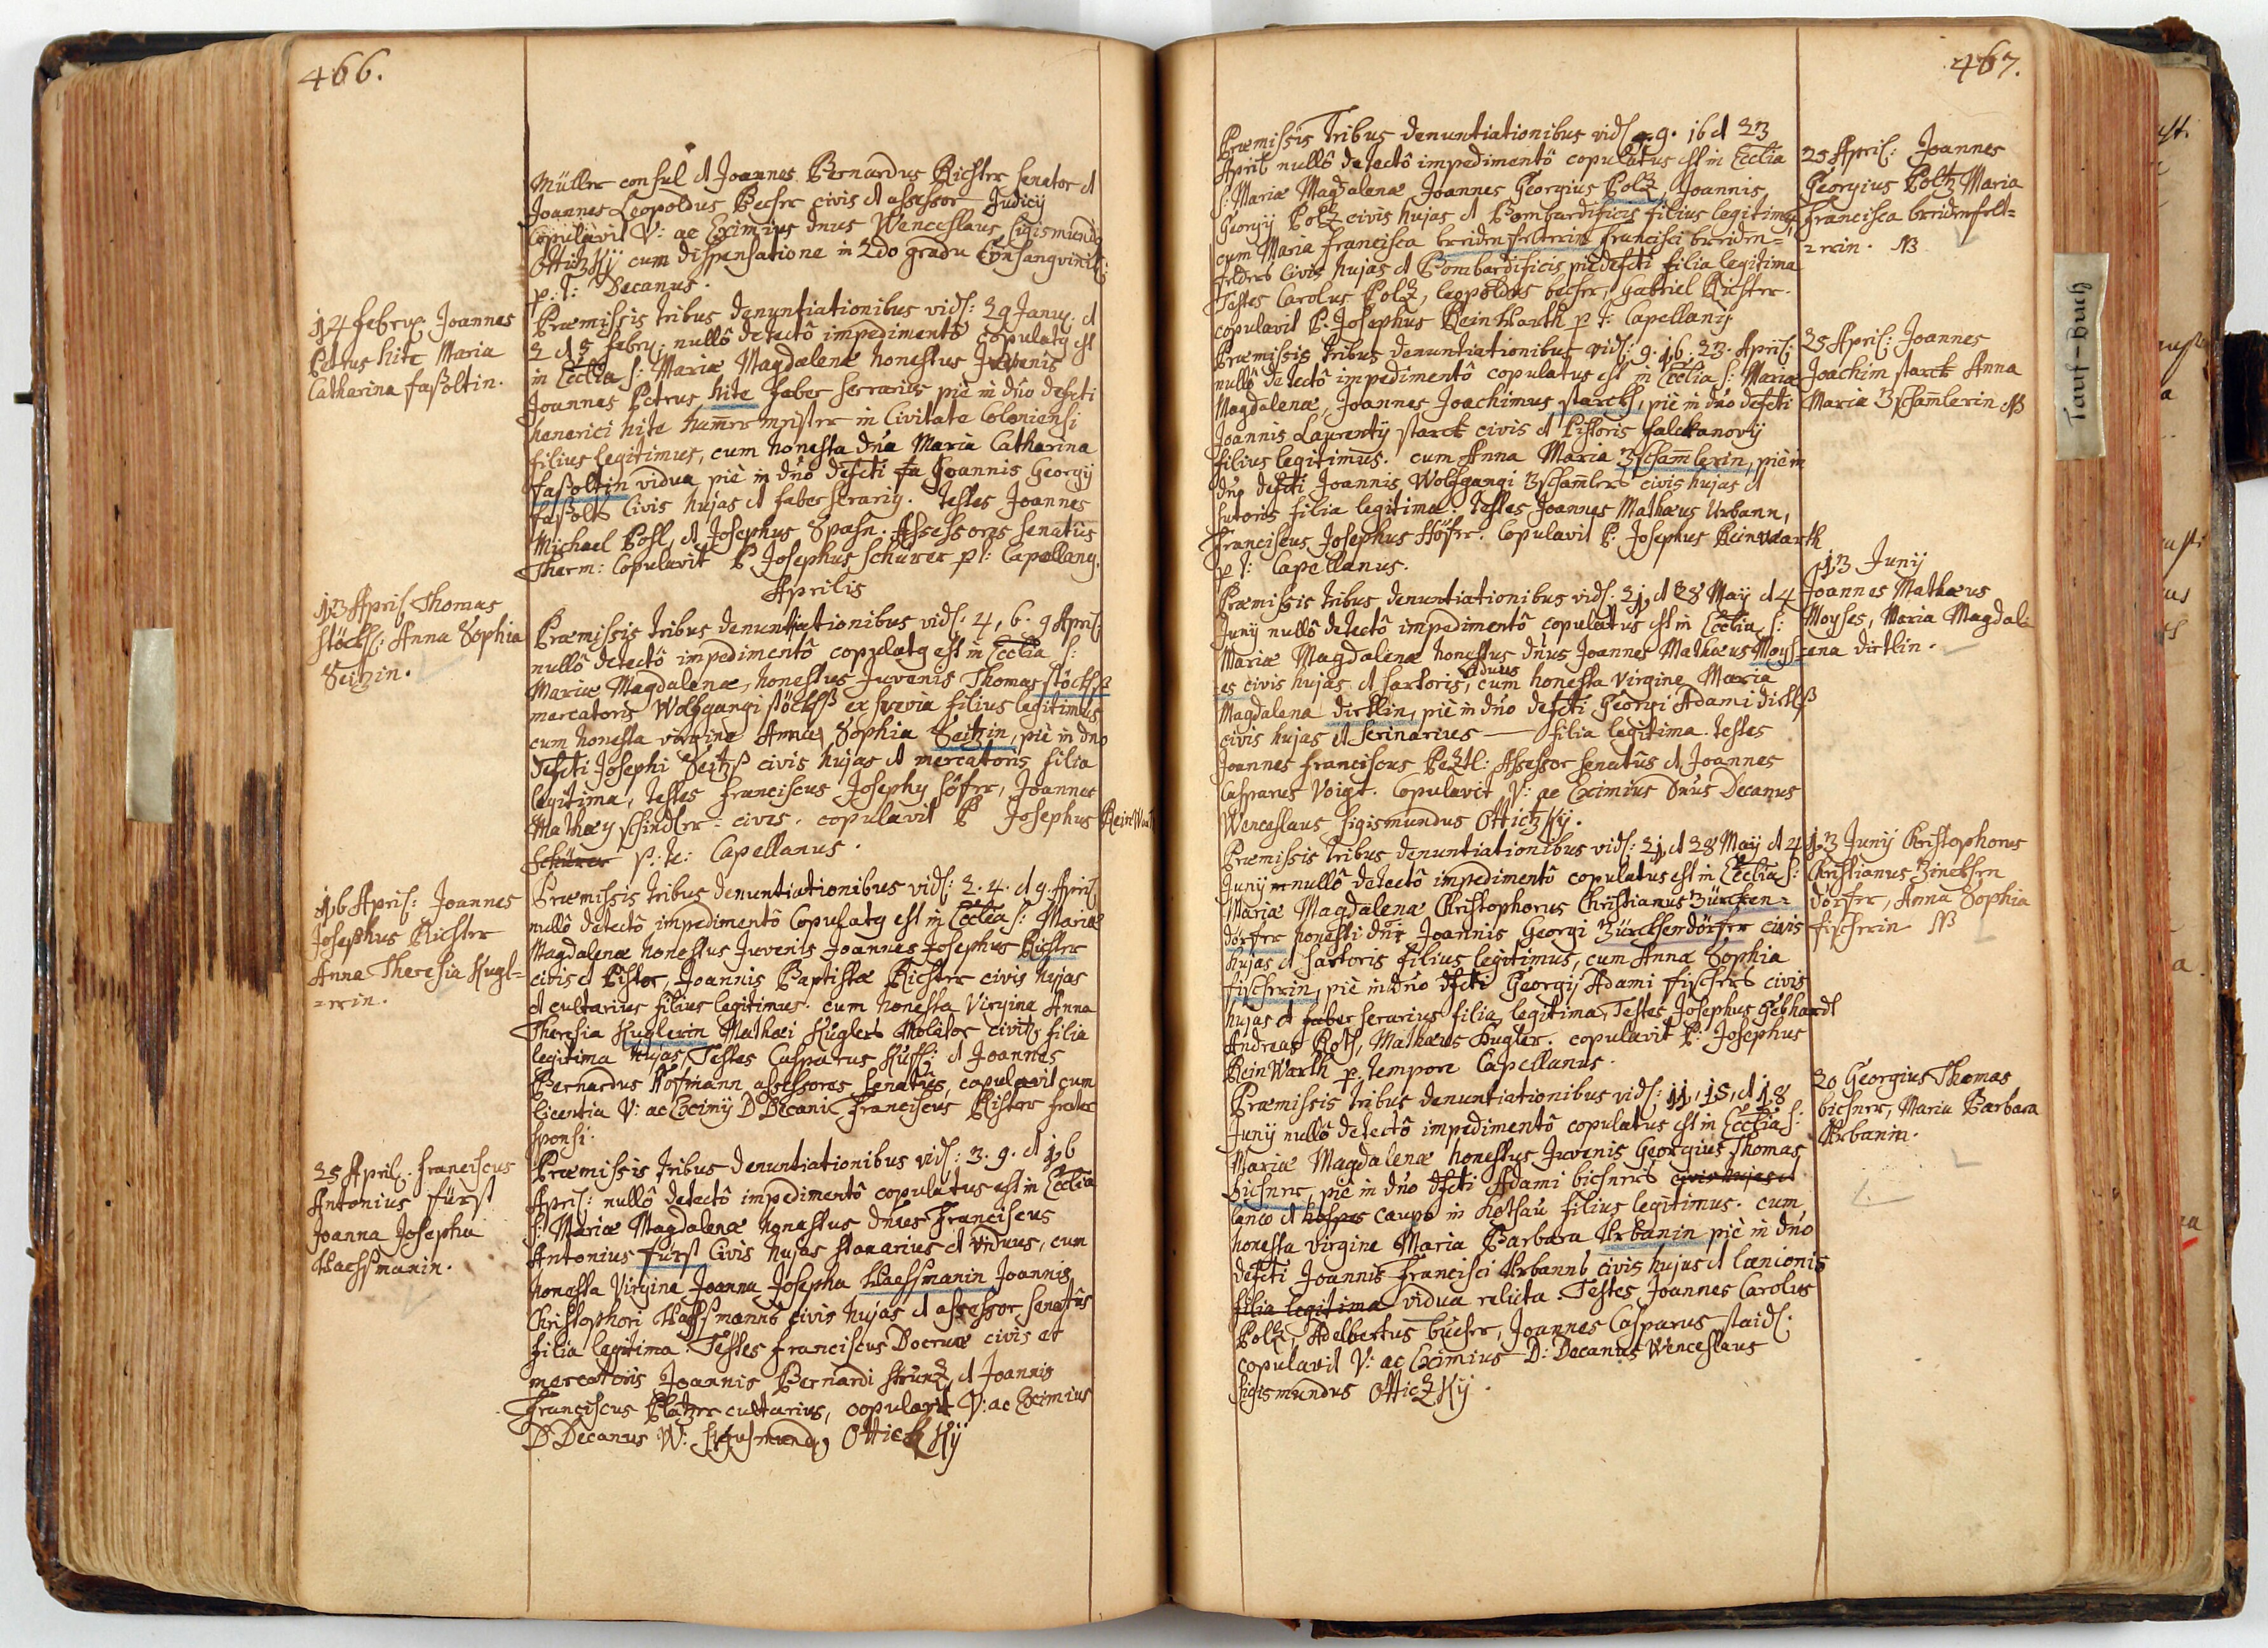 466.
Müller consul et Joannes Bernardus Richter senator et
Joannes Leopoldus Becher civis et assessor Judicij
Copulavit V: ac Eximius dnus Wenceslaus Sigismundq
Ottitzkÿ cum dispensatione in 2do gradu Consangvinit:
p: t: Decanus.
14 Febru: Joannes
Petrus hite Maria
Catharina faßoltin.
Præmissis tribus denuntiationibus vid: 29 Janu: et
2 et 5 Febru: nullô detectô impedimentô copulatq est
in Ecclia S: Mariæ Magdalenæ honestus Juvenis
Joannes Petrus hite faber serrarius piè in dno defcti
henerici hite hamermeister in Civitate Coloniensi
filius legitimus, cum honesta dna Maria Catharina
faßoltin vidua piè in dno defcti Joannis Georgij
faßolts Civis hujas et faber serarig. Testes Joannes
Michael Pohl, et Josephus Spahn: Assessores senatûs
Therm: Copulavit P. Josephus Schürer p t: Capellang.
Aprilis
13 April Thomas
Stöckl: Anna Sophia
Seitzin.
Præmissis tribus denuntiationibus vid: 4, 6. 9 April:
nullô detectô impedimentô copulatq est in Ecclia S:
Mariæ Magdalenæ, honestus Juvenis Thomas
mercatoris Wolfgangi ex svevia filius legitimus
cum honesta virgine Anna Sophia Seitzin, piè in dno
defcti Josephi civis hujas et mercatoris filia
legitima, testes Franciscus Josephq höfer, Joannes
Mathæq Schindler: civis. copulavit P Josephus ReinWarth
Schürer p: te: Capellanus.
16 April: Joannes
Josephus Richter
Anna Theresia Kugl=
=erin.
Præmissis tribus denuntiationibus vid: 2. 4. et 9. April
nullô detectô impedimentô Copulatq est in Ecclia S: Mariæ
Magdalenæ honestus Juvenis Joannes Josephus Richter
civis et Pistor, Joannis Baptistæ Richter civis hujas
et cultarius filius legitimus. cum honesta Virgine Anna
Theresia Kuglerin Mathæi Kuglers Molitor civitz filia
legitima hujas, Testes Casparus et Joannes
Bernardus Hofmann assessores senatûs, copulavit cum
licentia V: ac Eximij D Decani Franciscus Richter frater
sponsi.
25 April. Franciscus
Antonius fürst
Joanna Josepha
Hachsmanin.
Præmissis tribus denuntiationibus vid: 3. 9. et 16
April: nullô detectô impedimentô copulatus est in Ecclia
S: Mariæ Magdalenæ honestus dnus Franciscus
Antonius fürst Civis hujas stanarius et viduus, cum
honesta Virgine Joanna Josepha Hachsmanin Joannis
Christophori civis hujas et assessor senatûs
filia legitima. Testes Franciscus civis et
mercatoris Joannis Bernardi et Joannis
Franciscus Platzer cultarius, copulavit V: ac Eximius
D Decanus W: Sigismundq Ottitzkÿ
467.
Præmissis Tribus denuntiationibus vid 9. 16 et 23
April nullô detectô impedimentô copulatus est in Ecclia
S: Mariæ Magdalenæ Joannes Georgius Poltz, Joannis
Georgij Poltz civis hujas et Bombardificis filius legitimq
cum Maria francisca breidenfelterin Francisci breiden=
felders Civis hujas et Bombardificis piè defcti filia legitima
Testes Carolus Poltz, Leopoldus becher, Gabriel Richter.
copulavit P. Josephus ReinWarth p t: Capellanq
25 April: Joannes
Georgius Poltz Maria
Francisca breidenfelt=
=erin. NB
Præmissis tribus denuntiationibus vid: 9. 16. 23. April:
nullô detectô impedimentô copulatus est in Ecclia S: Mariæ
Magdalenæ, Joannes Joachimus starck, piè in dno defcti
Joannis Laurentij starck civis et Pistoris falckanovij
filius legitimus. cum Anna Maria Zschamlerin, piè in
dno defcti Joannis Wolfgangi Zschamlers civis hujas et
sutoris filia legitima. Testes Joannes Mathæus Urbann,
Franciscus Josephus Höfer. Copulavit P. Josephus Reinwarth
p t: Capellanus.
25 April: Joannes
Joachim starck Anna
Maria Zschamlerin NB
Præmissis tribus denuntiationibus vid: 21 et 28 Maij et 4
Junij nullô detectô impedimentô copulatus est in Ecclia S:
Mariæ Magdalenæ honestus dnus Joannes Mathæus Moys=
=es civis hujas et sartoris, viduus cum honesta Virgine Maria
Magdalena dirtlin, piè in dno defcti Georgi Adami
civis hujas et serinarius — filia legitima. testes
Joannes Franciscus Assessor senatûs et Joannes
Casparus Voigt. Copulavit V: ac Eximius Dnus Decanus
Wenceslaus Sigismundus Ottitzkÿ.
13 Junij
Joannes Mathæus
Moyses, Maria Magdal=
ena dirtlin.
Præmissis tribus denuntiationibus vid: 21 et 28 Maij et 4
Junij nullô detectô impedimentô copulatus est in Ecclia S:
Mariæ Magdalenæ Christophorus Christianus Zürcken=
dörfer honesti dni Joannis Georgi Zürckhendörfer civis
hujas et sartoris filius legitimus, cum Anna Sophia
fischerin, piè in dno dfcti Georgij Adami fischers civis
hujas et faber serarius filia legitima, Testes Josephus Gebhardt
Andreas Roth, Mathæus Kugler. copulavit P: Josephus
ReinWarth p. tempore Capellanus.
13 Junij Christophorus
Christianus
dörfer, Anna Sophia
fischerin NB
Præmissis tribus denuntiationibus vid: 11, 15, et 18
Junij nullô detectô impedimentô copulatus est in Ecclia S:
Mariæ Magdalenæ honestus Juvenis Georgius Thomas
bichner, piè in dno dfcti Adami bichners civis hujas et
lanio et hospes caupo in filius legitimus. cum
honesta virgine Maria Barbara Urbanin piè in dno
defcti Joannis Francisci Urbanns civis hujus et lanionis
filia legitima vidua relicta. Testes Joannes Carolus
Poltz, Adelbertus bücher, Joannes Casparus
copulavit V: ac Eximius D: Decanus Wenceslaus
Sigismundus Ottitzkÿ.
20 Georgius Thomas
bichner, Maria Barbara
Urbanin.
Tauf-Buch